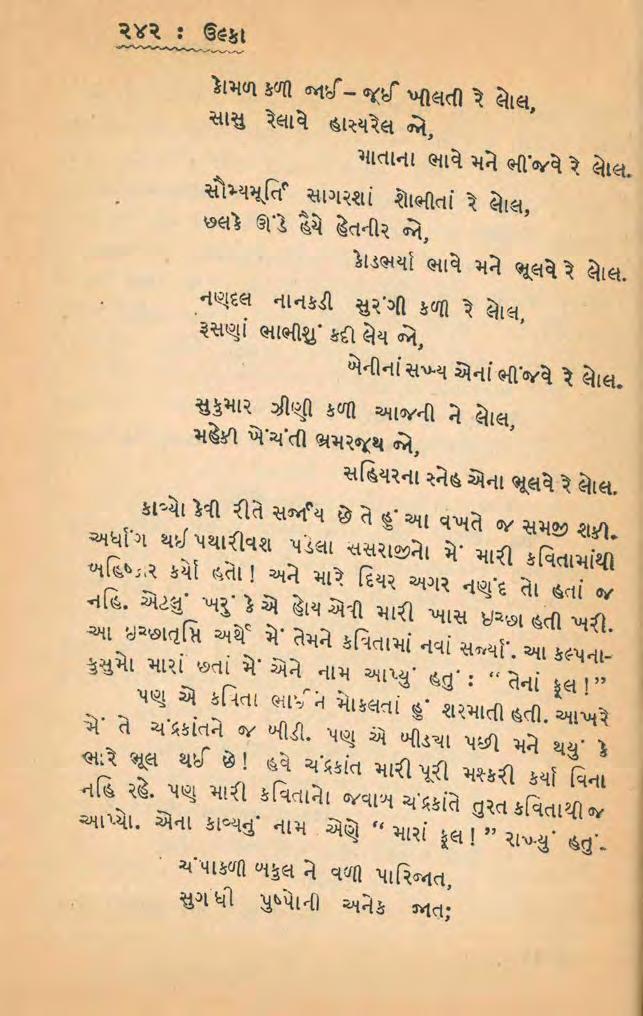 ૨૪૨ : ઉલ્કા
કોમળ કળી જાઈ – જૂઈ ખીલતી રે લોલ,
સાસુ રેલાવે હાસ્યરેલ જો,
માતાના ભાવે મને ભીંજવે રે લોલ.
સૌમ્યમૂર્તિ સાગરશાં શોભીતાં રે લોલ,
છલકે ઊંડે હૈયે હેતનીર જો,
કોડભર્યા ભાવે મને ભૂલવે રે લોલ.
નણદલ નાનકડી સુરંગી કળી રે લોલ,
રૂસણાં ભાભીશું કદી લેય જો,
બેનીનાં સખ્ય એનાં ભીંજવે રે લોલ.
સુકુમાર ઝીણી કળી આજની ને લોલ,
મહેકી ખેંચંતી ભ્રમરજૂથ જો,
સહિયરના સ્નેહ એના ભૂલવે રે લોલ.
કાવ્યો કેવી રીતે સર્જાય છે તે હું આ વખતે જ સમજી શકી.
અર્ધાંગ થઈ પથારીવશ પડેલા સસરાજીનો મેં મારી કવિતામાંથી
બહિષ્કાર કર્યો હતો! અને મારે દિયર અગર નણંદ તો હતાં જ
નહિ. એટલું ખરું કે એ હોય એવી મારી ખાસ ઇચ્છા હતી ખરી.
આ ઇચ્છાતૃપ્તિ અર્થે મેં તેમને કવિતામાં નવાં સર્જ્યાં. આ કલ્પના-
કુસુમો મારાં છતાં મેં એને નામ આપ્યું હતું : “ તેનાં ફૂલ ! ”
પણ એ કવિતા ભાઈને મોકલતાં હું શરમાતી હતી. આખરે
મેં તે ચંદ્રકાંતને જ બીડી. પણ એ બીડ્યા પછી મને થયું કે
ભારે ભૂલ થઈ છે! હવે ચંદ્રકાંત મારી પૂરી મશ્કરી કર્યા વિના
નહિ રહે. પણ મારી કવિતાનો જવાબ ચંદ્રકાંતે તુરત કવિતાથી જ
આપ્યો. એના કાવ્યનું નામ એણે “ મારાં ફૂલ ! ” રાખ્યું હતું.
ચંપાકળી બકુલ ને વળી પારિજાત,
સુગંધી પુષ્પોની અનેક જાત;